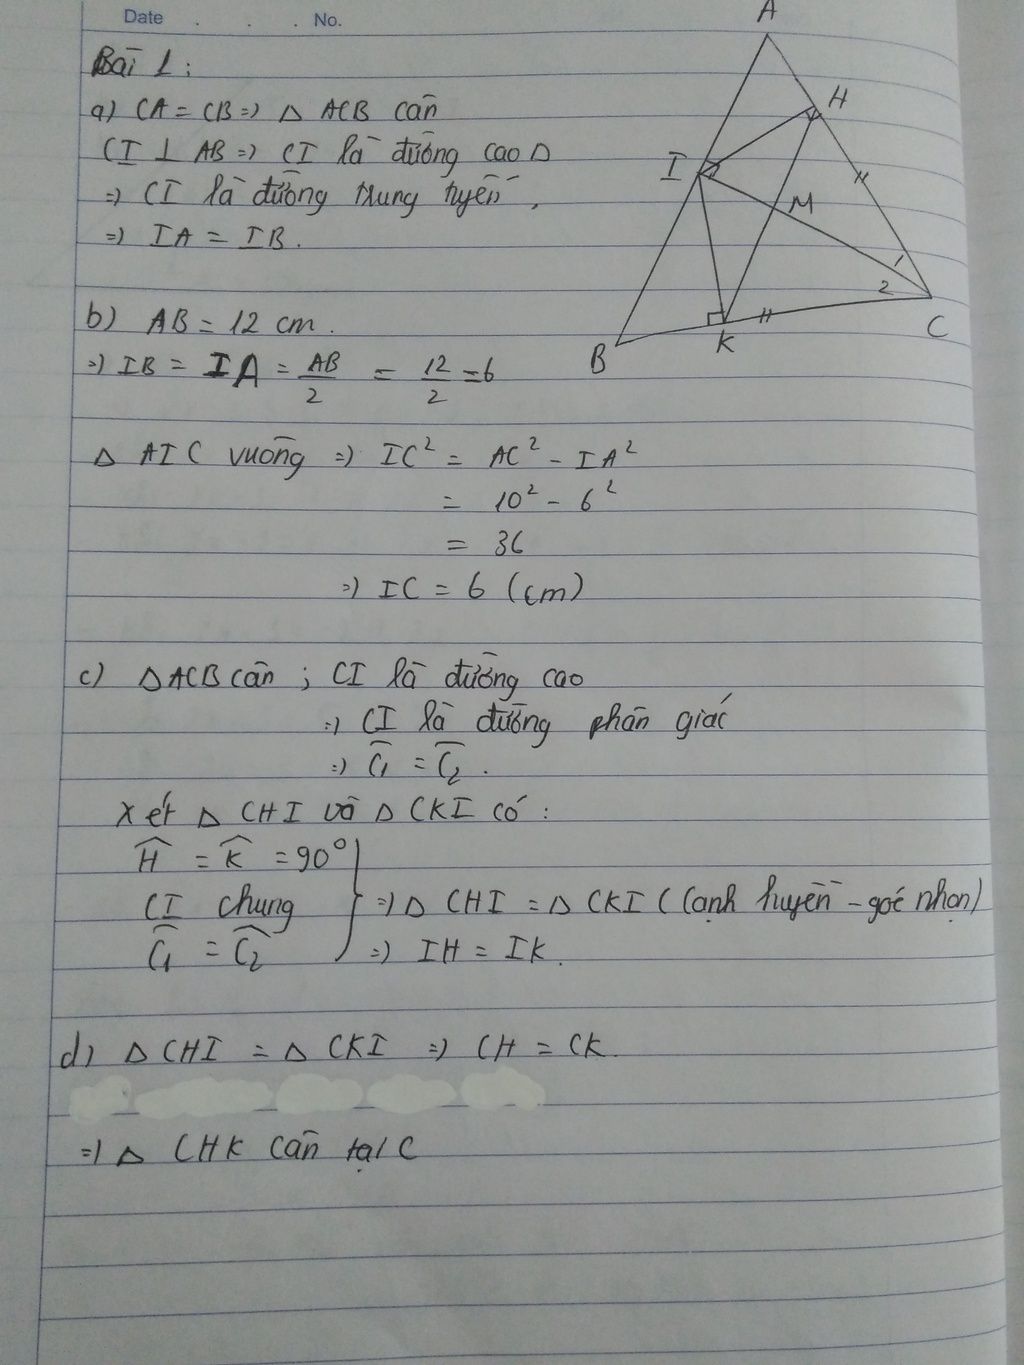 Date . . . No.
Bài 1:
a) CA = CB => Δ ACB cân
CI ⊥ AB => CI là đường cao Δ
=> CI là đường trung tuyến.
=> IA = IB.
b) AB = 12 cm.
=> IB = IA = AB/2 = 12/2 = 6
Δ AIC vuông => IC² = AC² - IA²
= 10² - 6²
= 36
=> IC = 6 (cm)
c) ΔACB cân ; CI là đường cao
=> CI là đường phân giác
=> Ĉ1 = Ĉ2.
Xét Δ CHI và Δ CKI có:
Ĥ = K̂ = 90°
CI chung => Δ CHI = Δ CKI (cạnh huyền - góc nhọn)
Ĉ1 = Ĉ2 => IH = IK.
d) Δ CHI = Δ CKI => CH = CK.
=> Δ CHK cân tại C
A
H
I
M
1
2
C
B
K